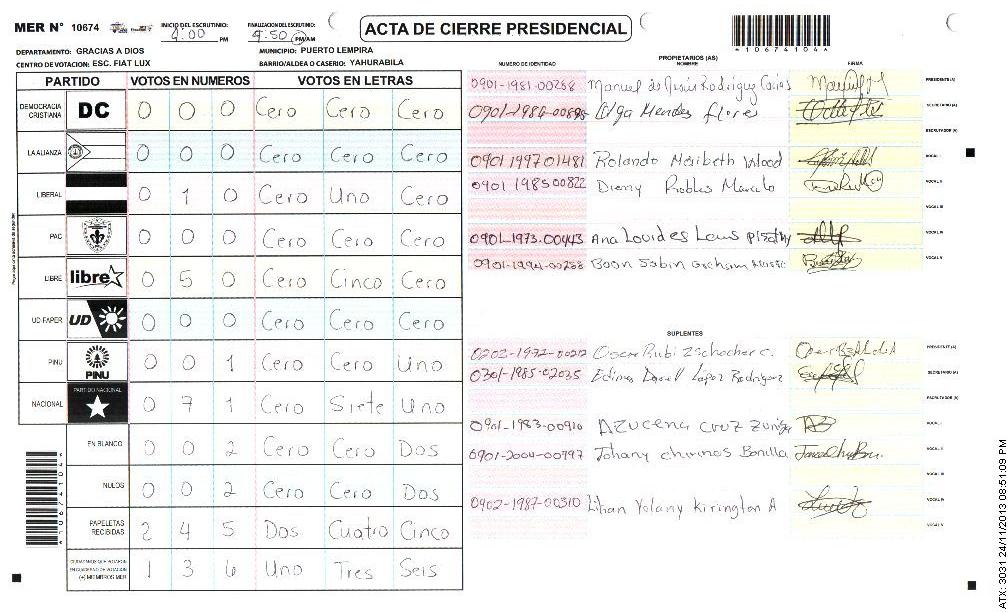 MER N° 10674 INICIO DEL ESCRUTINIO: 4:00 PM FINALIZACION DEL ESCRUTINIO: 4:50 PM/AM
ACTA DE CIERRE PRESIDENCIAL
*10674104*
DEPARTAMENTO: GRACIAS A DIOS MUNICIPIO: PUERTO LEMPIRA
CENTRO DE VOTACION: ESC. FIAT LUX BARRIO/ALDEA O CASERIO: YAHURABILA
PARTIDO VOTOS EN NUMEROS VOTOS EN LETRAS
DEMOCRACIA CRISTIANA DC 0 0 0 Cero Cero Cero
LA ALIANZA 0 0 0 Cero Cero Cero
LIBERAL 0 1 0 Cero Uno Cero
PAC 0 0 0 Cero Cero Cero
LIBRE libre 0 5 0 Cero Cinco Cero
UD-FAPER UD 0 0 0 Cero Cero Cero
PINU PINU 0 0 1 Cero Cero Uno
NACIONAL PARTIDO NACIONAL 0 7 1 Cero Siete Uno
EN BLANCO 0 0 2 Cero Cero Dos
NULOS 0 0 2 Cero Cero Dos
PAPELETAS RECIBIDAS 2 4 5 Dos Cuatro Cinco
CIUDADANOS QUE VOTARON EN CUADERNO DE VOTACION (+) MIEMBROS MER 1 3 6 Uno Tres Seis
PROPIETARIOS (AS)
NUMERO DE IDENTIDAD NOMBRE FIRMA
0901-1981-00258 Manuel de Jesús Rodriguez PRESIDENTE (A)
Olga Mendes Flores SECRETARIO (A)
ESCRUTADOR (A)
0901 1997 01481 Rolando Maribeth Wood VOCAL I
0901 1985 00822 Robles Marcelo VOCAL II
VOCAL III
0901-1973-00443 Ana Lourdes VOCAL IV
VOCAL V
SUPLENTES
Oscar Rubi PRESIDENTE (A)
0301-1985-02035 Lopez Rodriguez SECRETARIO (A)
ESCRUTADOR (A)
0901-1983-00910 AZUCENA CRUZ Zuniga VOCAL I
0901-2004-00797 Johany Bonilla VOCAL II
VOCAL III
0902-1987-00310 Lilian Yolany Kirington A VOCAL IV
VOCAL V
ATX: 3031 24/11/2013 08:51:09 PM